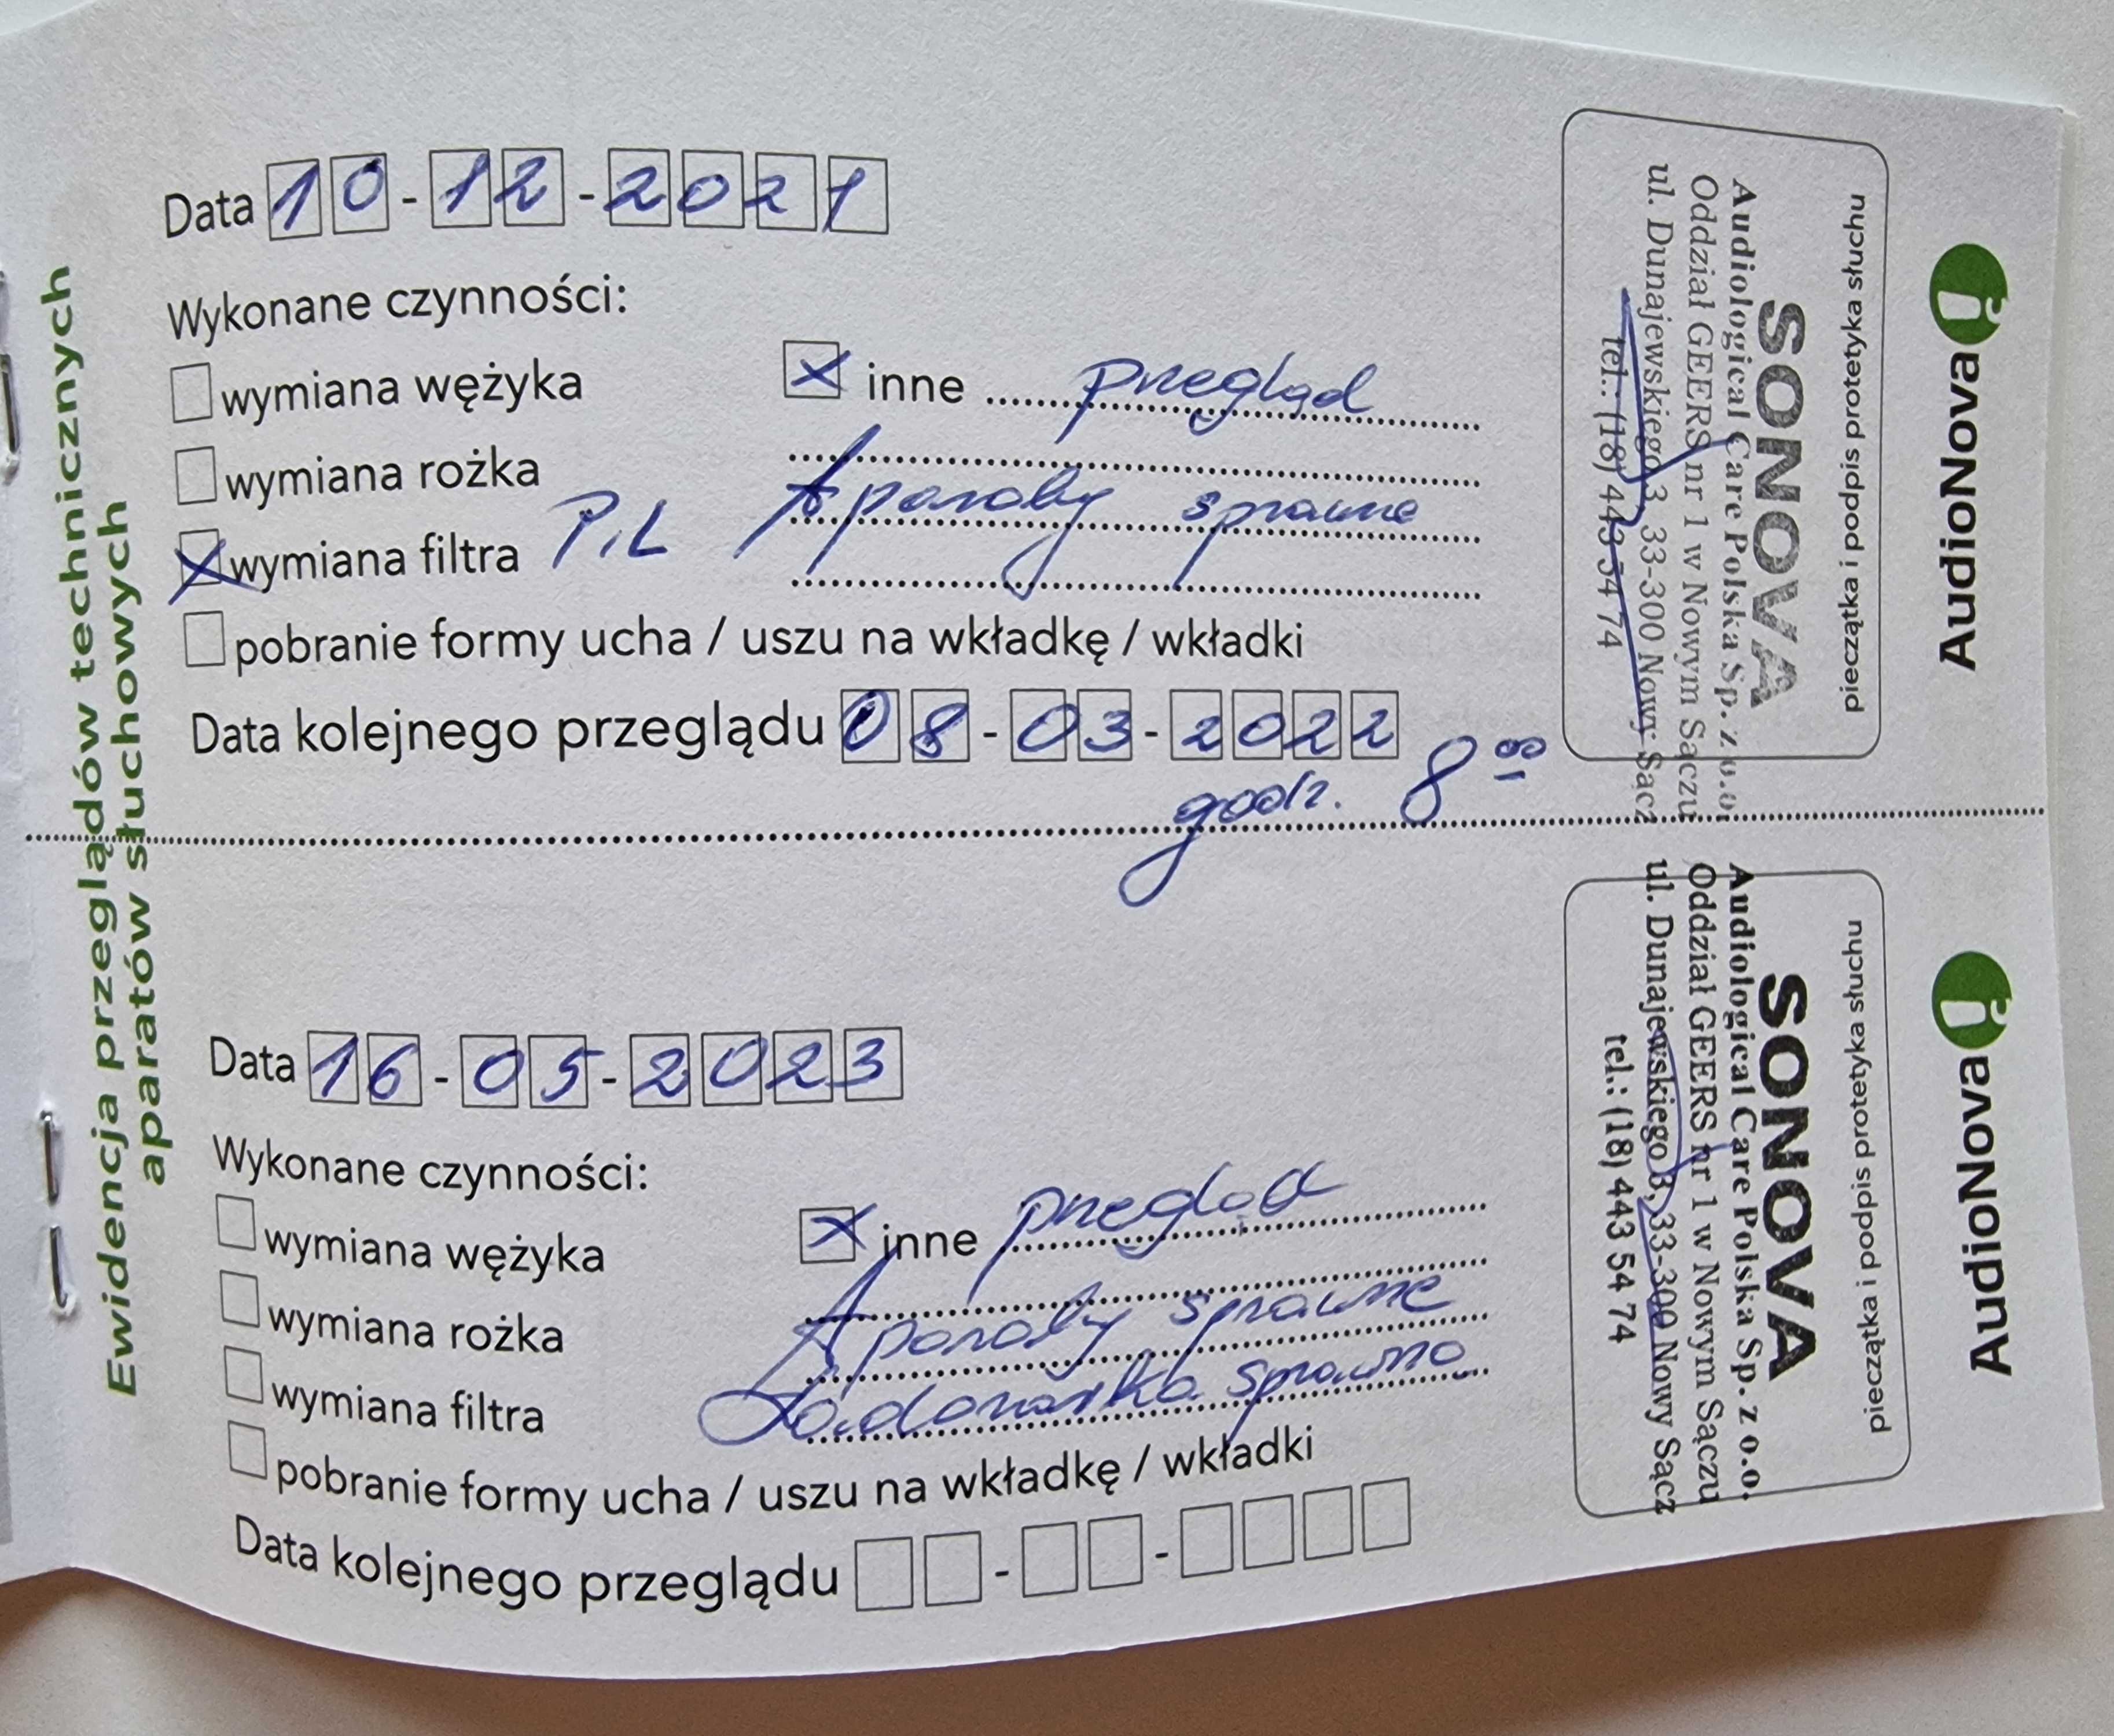 Ewidencja przeglądów technicznych
aparatów słuchowych
Data 10-12-2021
Wykonane czynności:
wymiana wężyka
X inne przegląd
wymiana rożka
Aparaty sprawne
X wymiana filtra P.L
pobranie formy ucha / uszu na wkładkę / wkładki
Data kolejnego przeglądu 08-03-2022
godz. 8⁰⁰
SONOVA
Audiological Care Polska Sp. z o.o.
Oddział GEERS nr 1 w Nowym Sączu
ul. Dunajewskiego 3, 33-300 Nowy Sącz
tel.: (18) 443 54 74
pieczątka i podpis protetyka słuchu
AudioNova
Data 16-05-2023
Wykonane czynności:
wymiana wężyka
X inne przegląd
wymiana rożka
Aparaty sprawne
wymiana filtra
Ładowarka sprawna
pobranie formy ucha / uszu na wkładkę / wkładki
Data kolejnego przeglądu
SONOVA
Audiological Care Polska Sp. z o.o.
Oddział GEERS nr 1 w Nowym Sączu
ul. Dunajewskiego 3, 33-300 Nowy Sącz
tel.: (18) 443 54 74
pieczątka i podpis protetyka słuchu
AudioNova